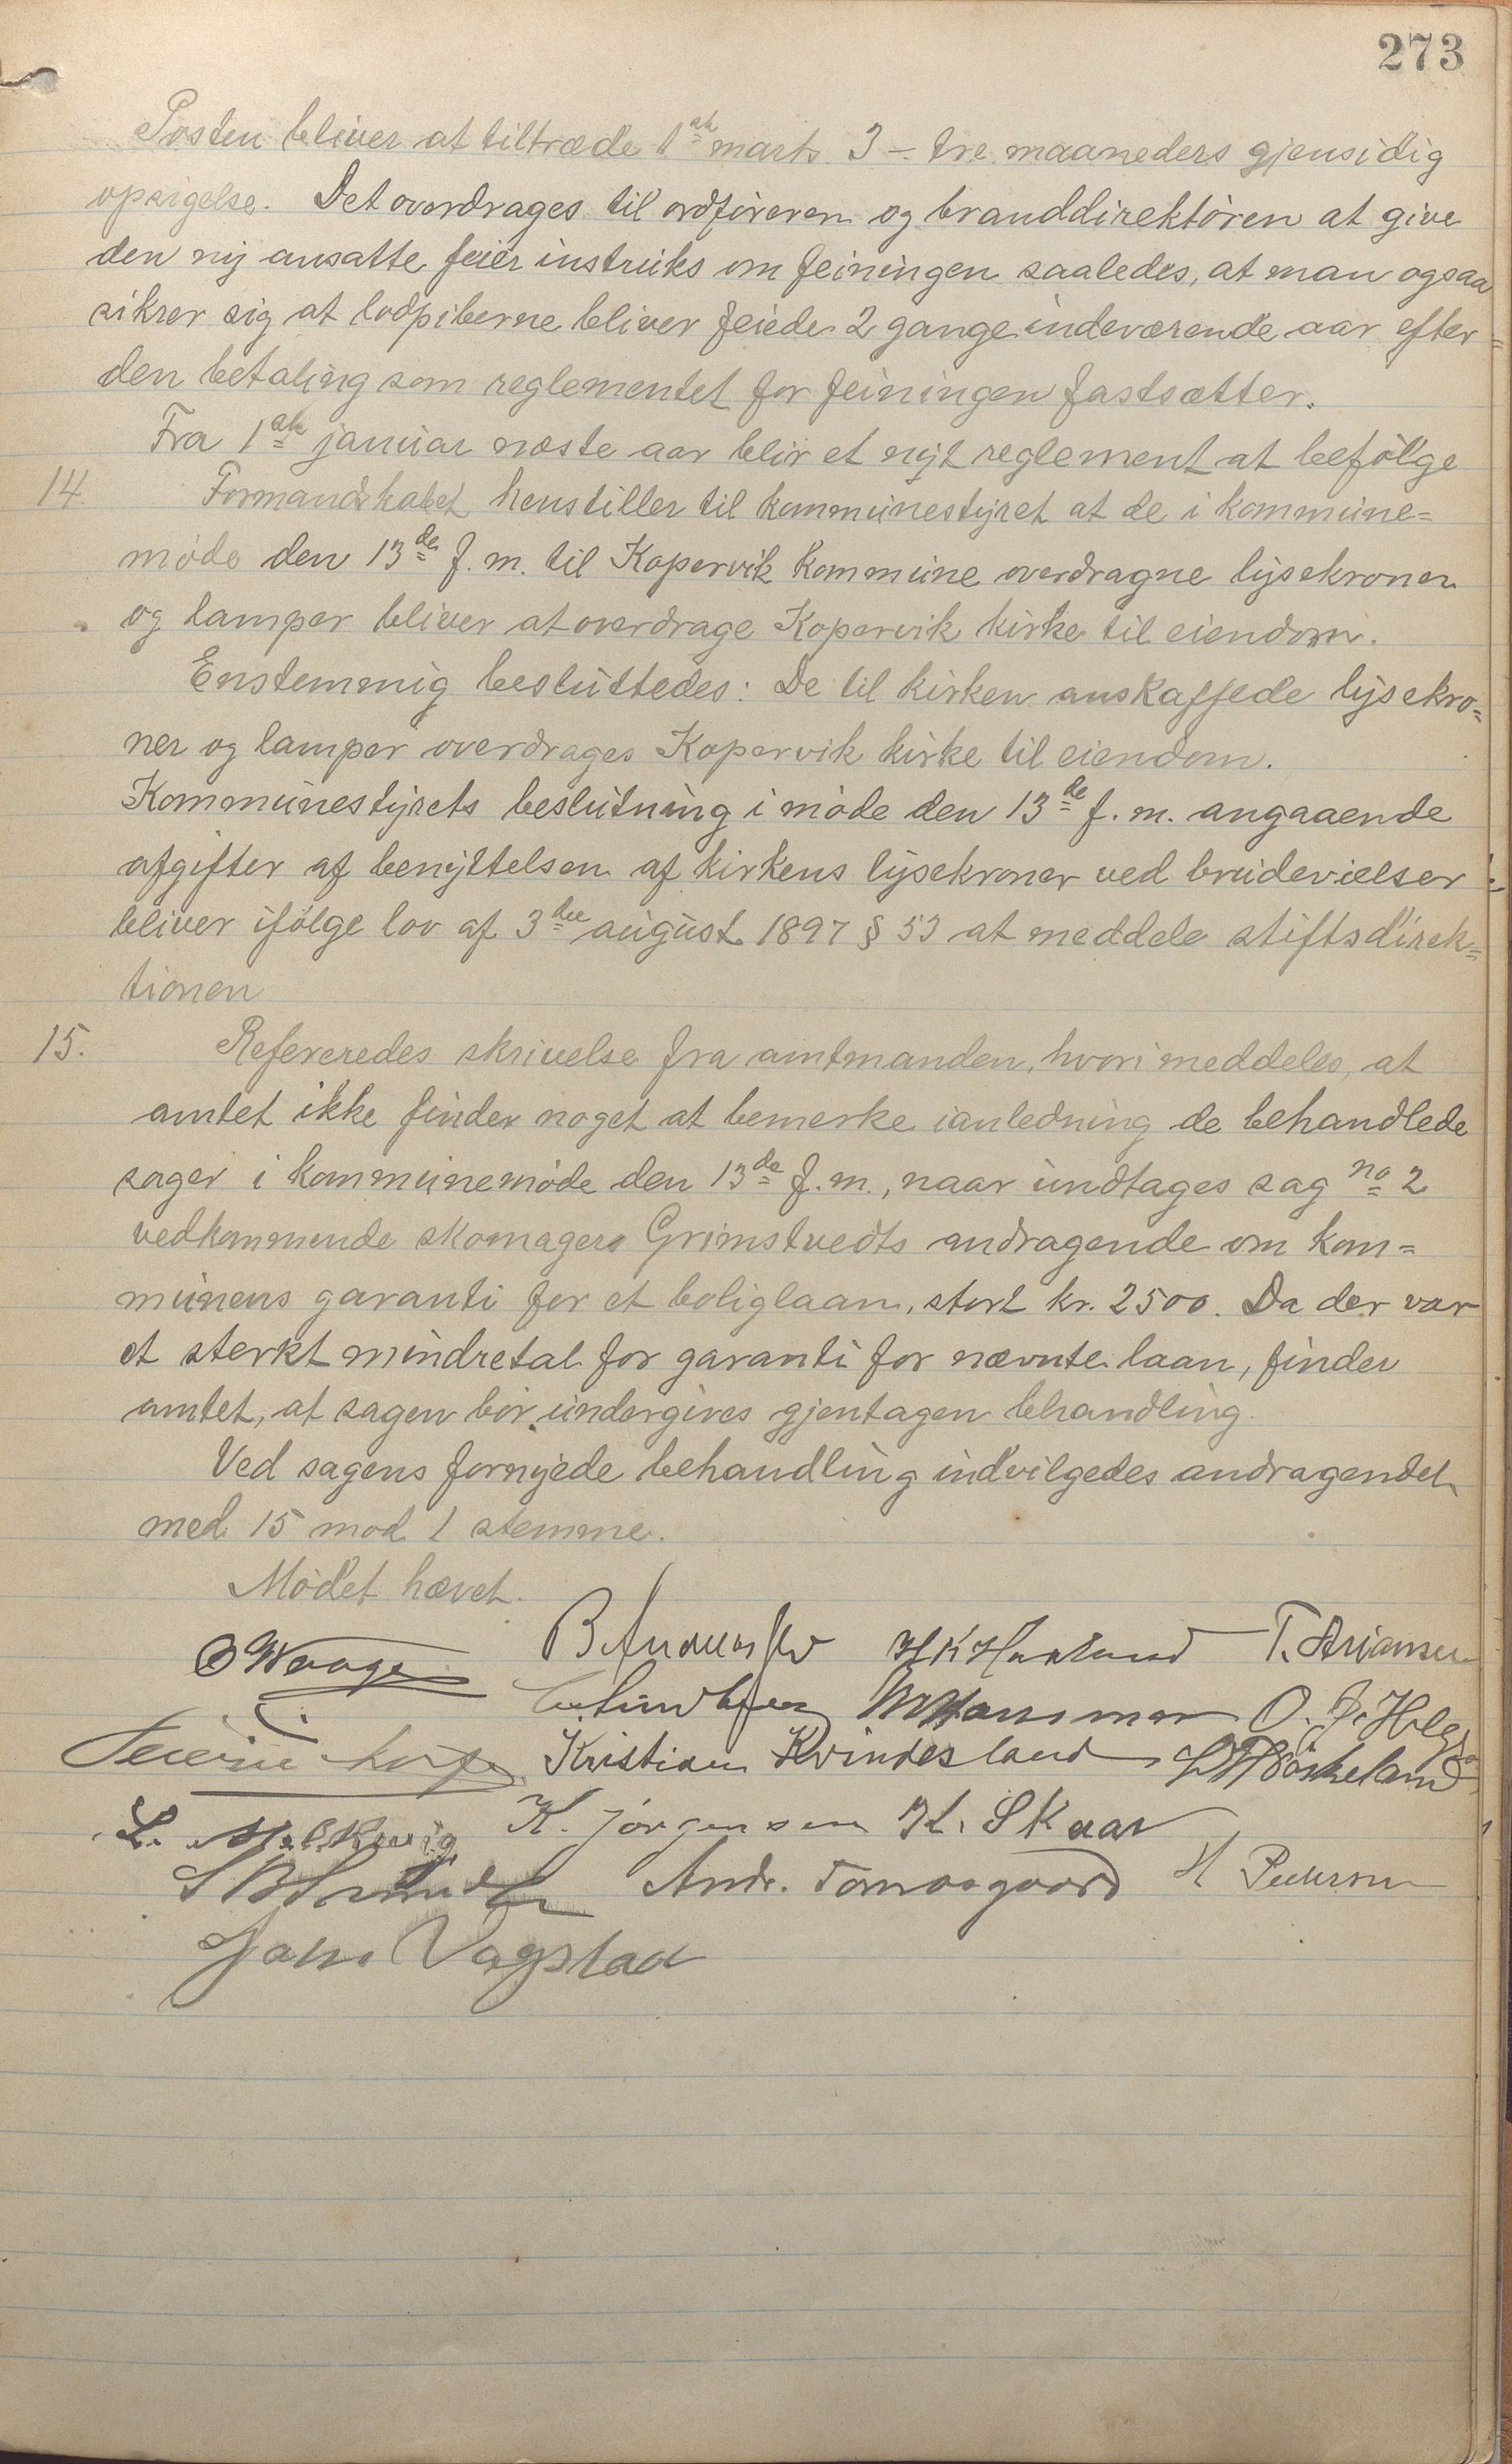 273
Posten bliver at tiltræde 1ste marts. 3 - tre maaneders gjensidig
opsigelse. Det overdrages til ordføreren og branddirektøren at give
den ny ansatte feier instruks om feiningen saaledes, at man ogsaa
sikrer sig at lodpiberne bliver feiede 2 gange indeværende aar efter
den betaling som reglementet for feiningen fastsætter.
Fra 1ste januar næste aar blir et nyt reglement at befølge
14. Formandskabet henstiller til kommunestyret at de i kommune=
møde den 13de f. m. til Kopervik kommune overdragne lysekroner
og lamper bliver at overdrage Kopervik kirke til eiendom.
Enstemmig besluttedes: De til kirken anskaffede lysekro=
ner og lamper overdrages Kopervik kirke til eiendom.
Kommunestyrets beslutning i møde den 13de f. m. angaaende
afgifter af benyttelsen af kirkens lysekroner ved brudevielser
bliver ifølge lov af 3die august 1897 § 53 at meddele stiftsdirek=
tionen
15. Refereredes skrivelse fra amtmanden, hvori meddeles, at
amtet ikke finder noget at bemerke ianledning de behandlede
sager i kommunemøde den 13de f. m., naar undtages sag no 2
vedkommende skomagers Grimstvedts andragende om kom=
munens garanti for et boliglaan, stort kr. 2500. Da der var
et sterkt mindretal for garanti for nævnte laan, finder
amtet, at sagen bør undergives gjentagen behandling.
Ved sagens fornyede behandling indvilgedes andragendet
med 15 mod 1 stemme.
Mødet hævet.
O Waage H K Haaland T. Ariansen
M Hansman O. J.
Kristian Kvindesland
L. K. Jørgensen K. Skaar
Andr. Tomasgaard H Pedersen
Vagstad